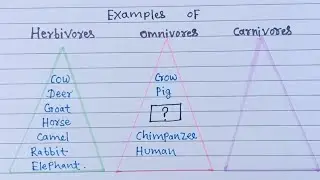 Examples of
Herbivores
Omnivores
Carnivores
Cow
Deer
Goat
Horse
Camel
Rabbit
Elephant.
Gow
Pig
?
Chimpanzee
Human